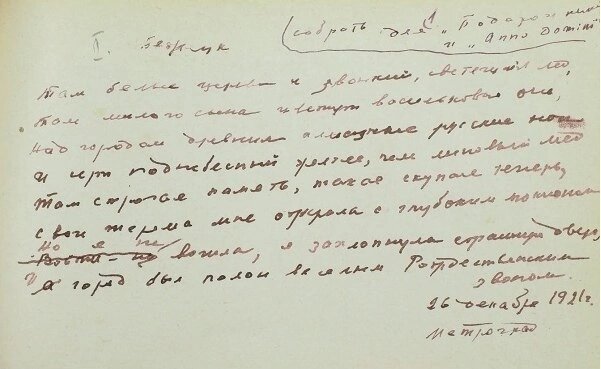 (собрать для „Подорожника“
и „Anno Domini“
I. Бежецк
Там белые церкви и звонкий, светящийся лед,
Там милого сына цветут васильковые очи,
Над городом древним алмазные русские ночи
И серп поднебесный желтее, чем липовый мед
Там строгая память, такая скупая теперь,
Свои терема мне открыла с глубоким поклоном
Но я не
вошла, я захлопнула страшную дверь,
И город был полон веселым Рождественским
звоном.
26 декабря 1921 г.
Петроград